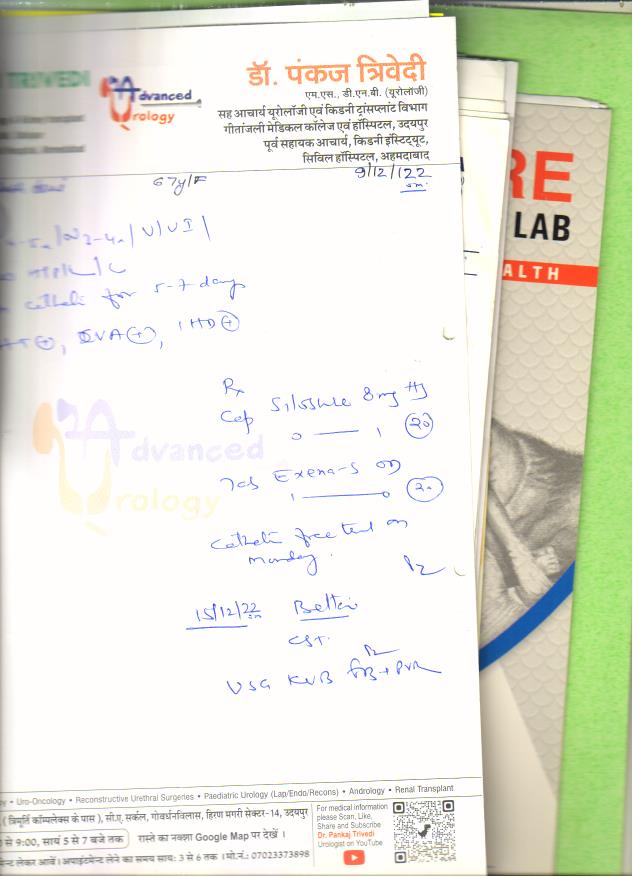 TRIVEDI
Advanced
Urology
डॉ. पंकज त्रिवेदी
एम.एस., डी.एन.बी. (यूरोलॉजी)
सह आचार्य यूरोलॉजी एवं किडनी ट्रांसप्लांट विभाग
गीतांजली मेडिकल कॉलेज एवं हॉस्पिटल, उदयपुर
पूर्व सहायक आचार्य, किडनी इंस्टिट्यूट,
सिविल हॉस्पिटल, अहमदाबाद
67y/F
9/12/22
for 5-7 days
CVA (+), IHD (+)
Rx
Cap 8mg HS
0 — 1 (20)
Tab Exena-S OD
1 — 0 (20)
Catheter free trial on
Monday.
15/12/22 Better
CST.
USG KUB FB+PVR
Advanced
Urology
RE
LAB
ALTH
• Uro-Oncology • Reconstructive Urethral Surgeries • Paediatric Urology (Lap/Endo/Recons) • Andrology • Renal Transplant
( त्रिमूर्ति कॉम्पलेक्स के पास ), सी.ए. सर्कल, गोवर्धनविलास, हिरण मगरी सेक्टर-14, उदयपुर
से 9:00, सायं 5 से 7 बजे तक रास्ते का नक्शा Google Map पर देखें ।
लेकर आवें। अपाइंटमेन्ट लेने का समय सायः 3 से 6 तक । मो.नं.: 07023373898
For medical information
please Scan, Like,
Share and Subscribe
Dr. Pankaj Trivedi
Urologist on YouTube